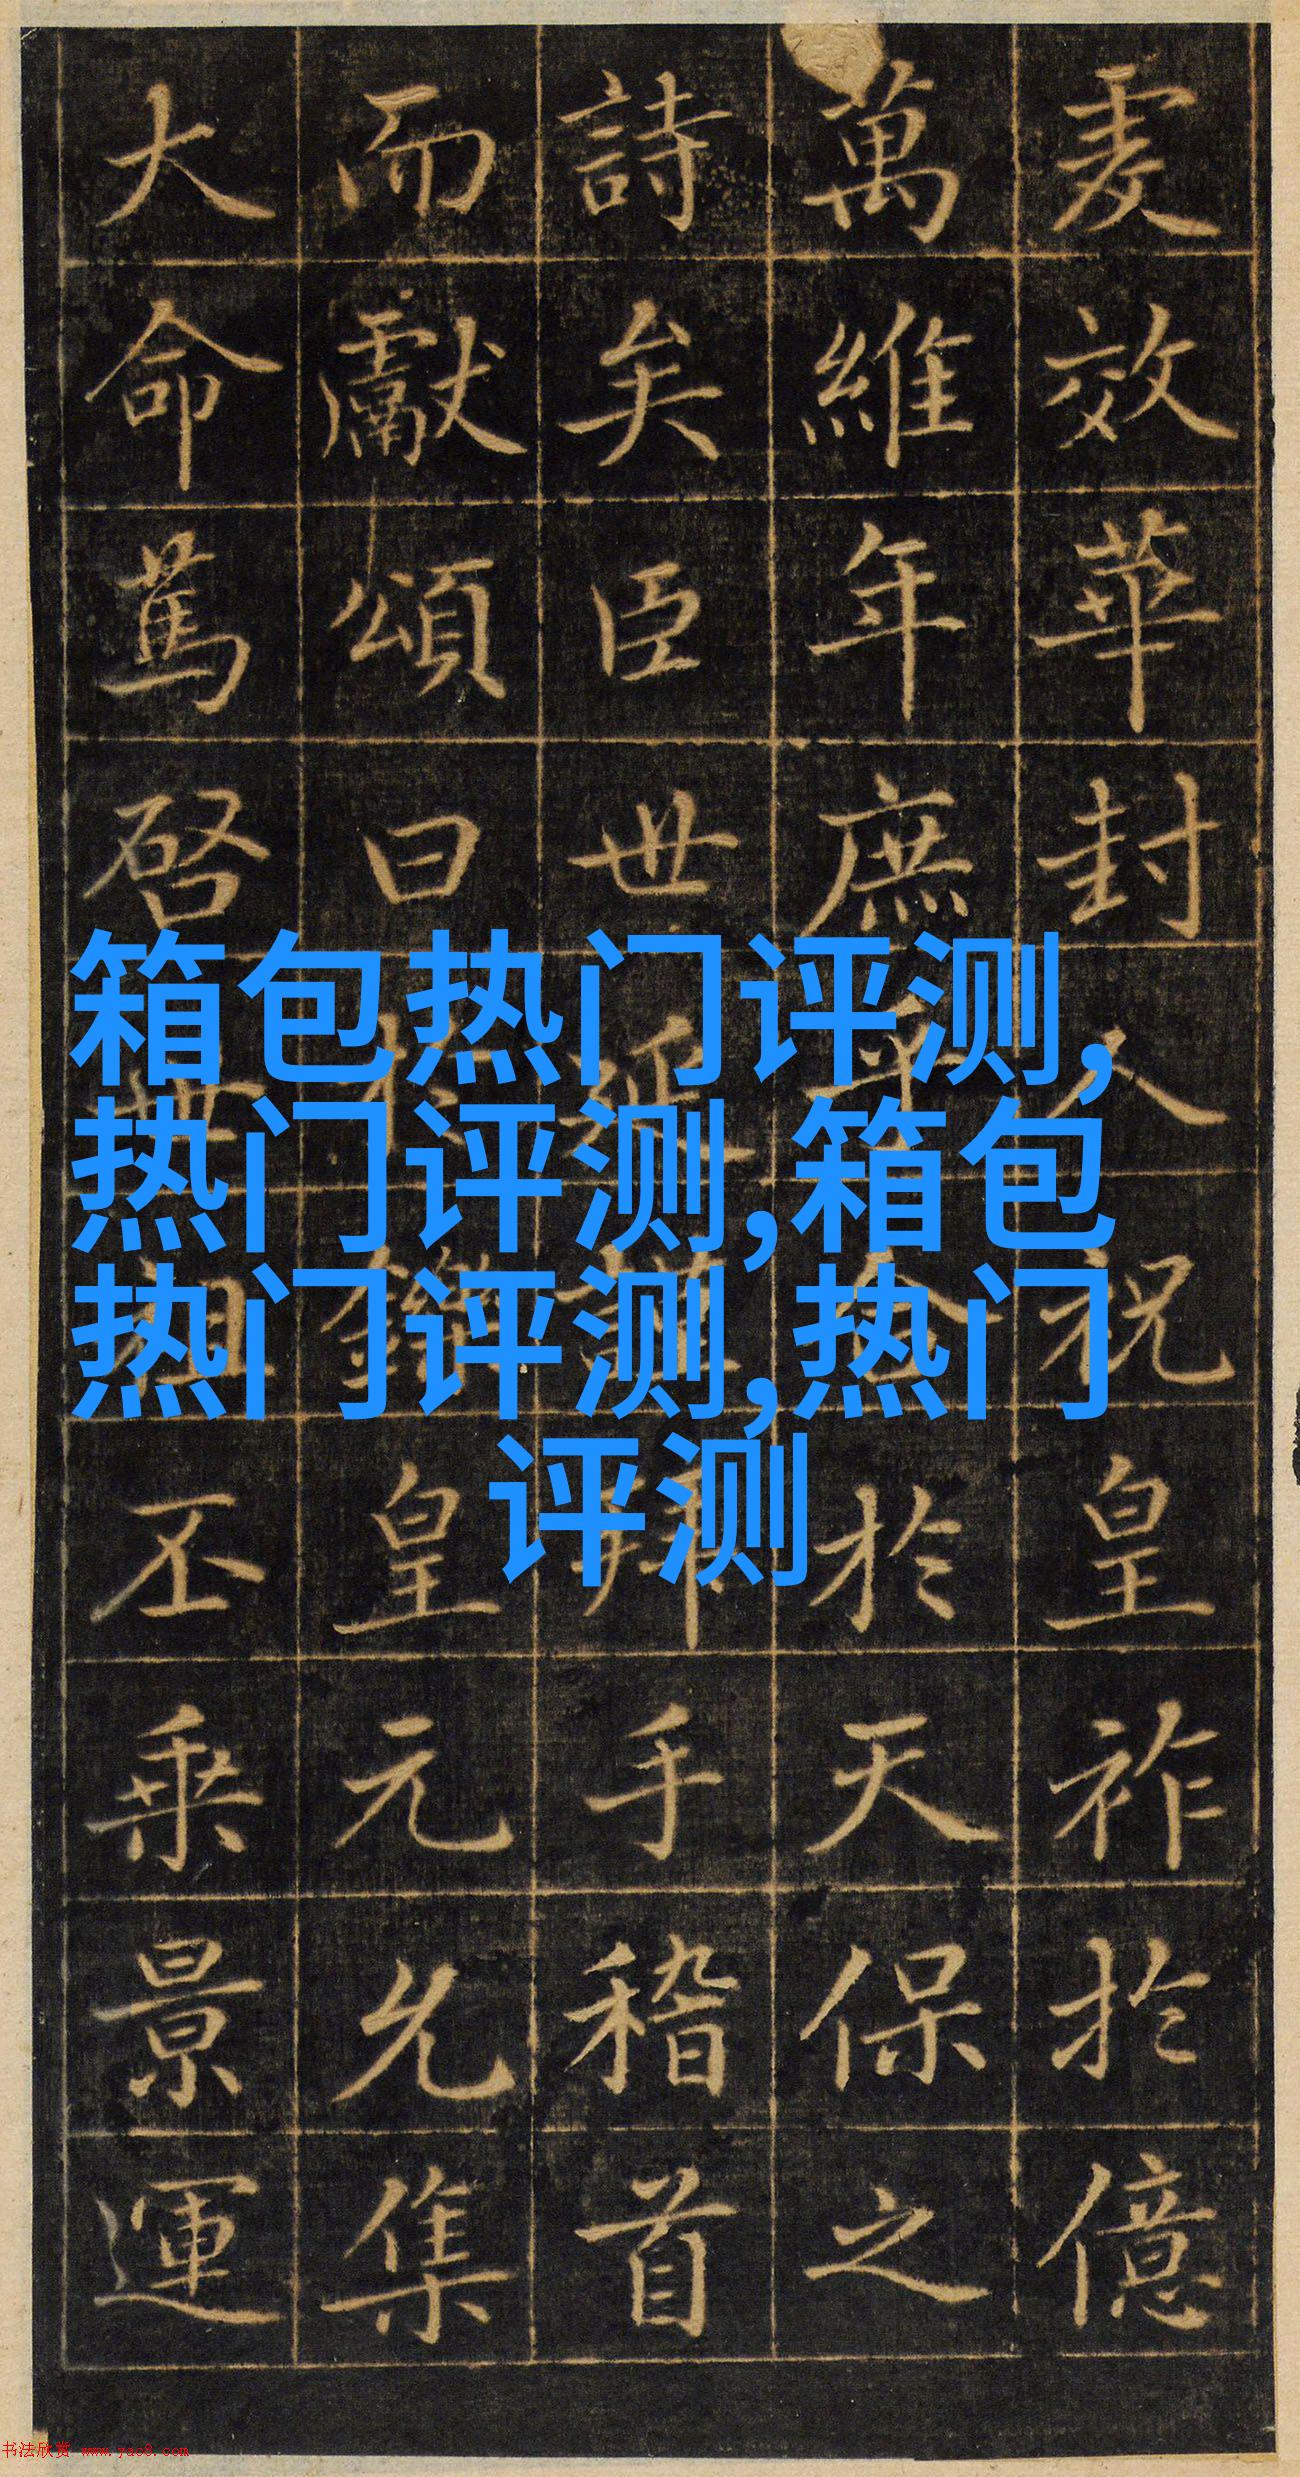 虔效華封人祝皇祚於億
萬維年庶乎合於天保之
詩矣臣世延謹拜手稽首
而獻頌曰於鑠皇元允集
大命篤啓世祖丕乘景運
箱包热门评测,
热门评测,箱包
热门评测,热门
评测
书法欣赏 www.yac8.com